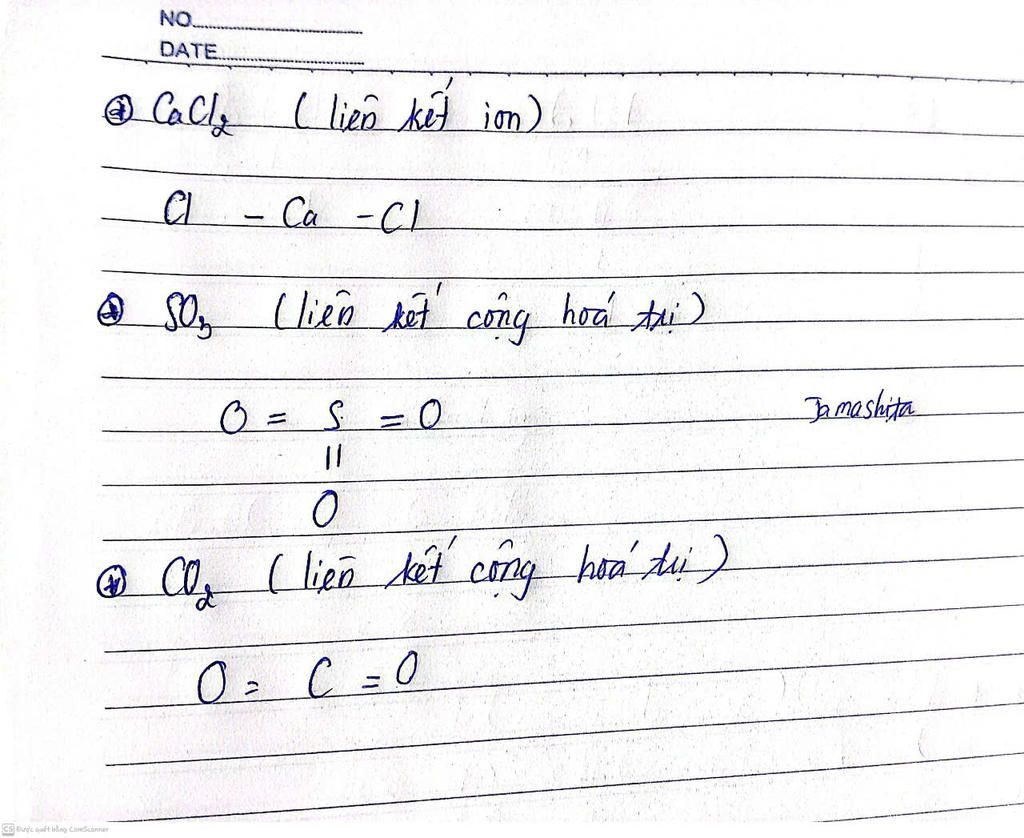 NO
DATE
CaCl₂ (liên kết ion)
Cl - Ca - Cl
SO₃ (liên kết cộng hoá trị)
O = S = O
Jamashita
||
O
CO₂ (liên kết cộng hoá trị)
O = C = O
CS Được quét bằng CamScanner